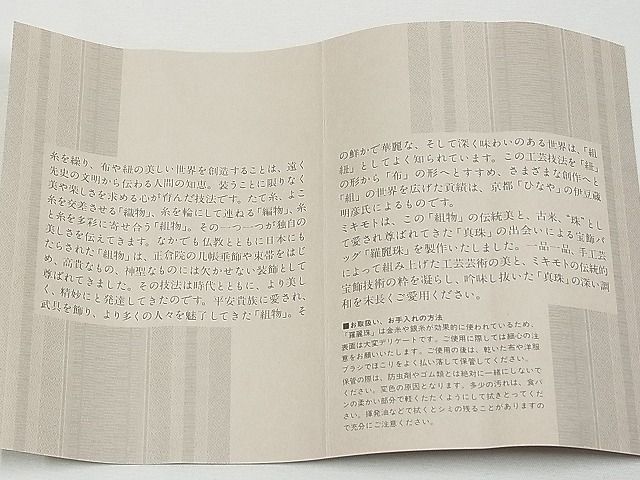 糸を繰り、布や紐の美しい世界を創造することは、遠く
先史の文明から伝わる人間の知恵。装うことに限りなく
美や楽しさを求める心が育んだ技法です。たて糸、よこ
糸を交差させる「織物」、糸を輪にして連ねる「編物」、糸
と糸を多彩に寄せ合う「組物」。その一つ一つが独自の
美しさを伝えてきます。なかでも仏教とともに日本にも
たらされた「組物」は、正倉院の几帳垂飾や束帯をはじ
め、高貴なもの、神聖なものには欠かせない装飾として
尊ばれてきました。その技法は時代とともに、より美し
く、精妙にと発達してきたのです。平安貴族に愛され、
武具を飾り、より多くの人々を魅了してきた「組物」。そ
の鮮かで華麗な、そして深く味わいのある世界は、「組
紐」としてよく知られています。この工芸技法を「紐」
の形から「布」の形へとすすめ、さまざまな創作へと
「組」の世界を広げた貢績は、京都「ひなや」の伊豆蔵
明彦氏によるものです。
ミキモトは、この「組物」の伝統美と、古来、“珠”とし
て愛され尊ばれてきた「真珠」の出会いによる宝飾バ
ッグ「羅麗珠」を製作いたしました。一品一品、手工芸
によって組み上げた工芸芸術の美と、ミキモトの伝統的
宝飾技術の粋を凝らし、吟味し抜いた「真珠」の深い調
和を末長くご愛用ください。
■お取扱い、お手入れの方法
「羅麗珠」は金糸や銀糸が効果的に使われているため、
表面は大変デリケートです。ご使用に際しては細心の注
意をお願いいたします。ご使用の後は、乾いた布や洋服
ブラシでほこりをよく払い落して保管してください。
保管の際は、防虫剤やゴム類とは絶対に一緒にしないで
ください。変色の原因となります。多少の汚れは、食パ
ンの柔かい部分で軽くたたくようにして拭きとってくだ
さい。揮発油などで拭くとシミの残ることがありますの
で充分にご注意ください。